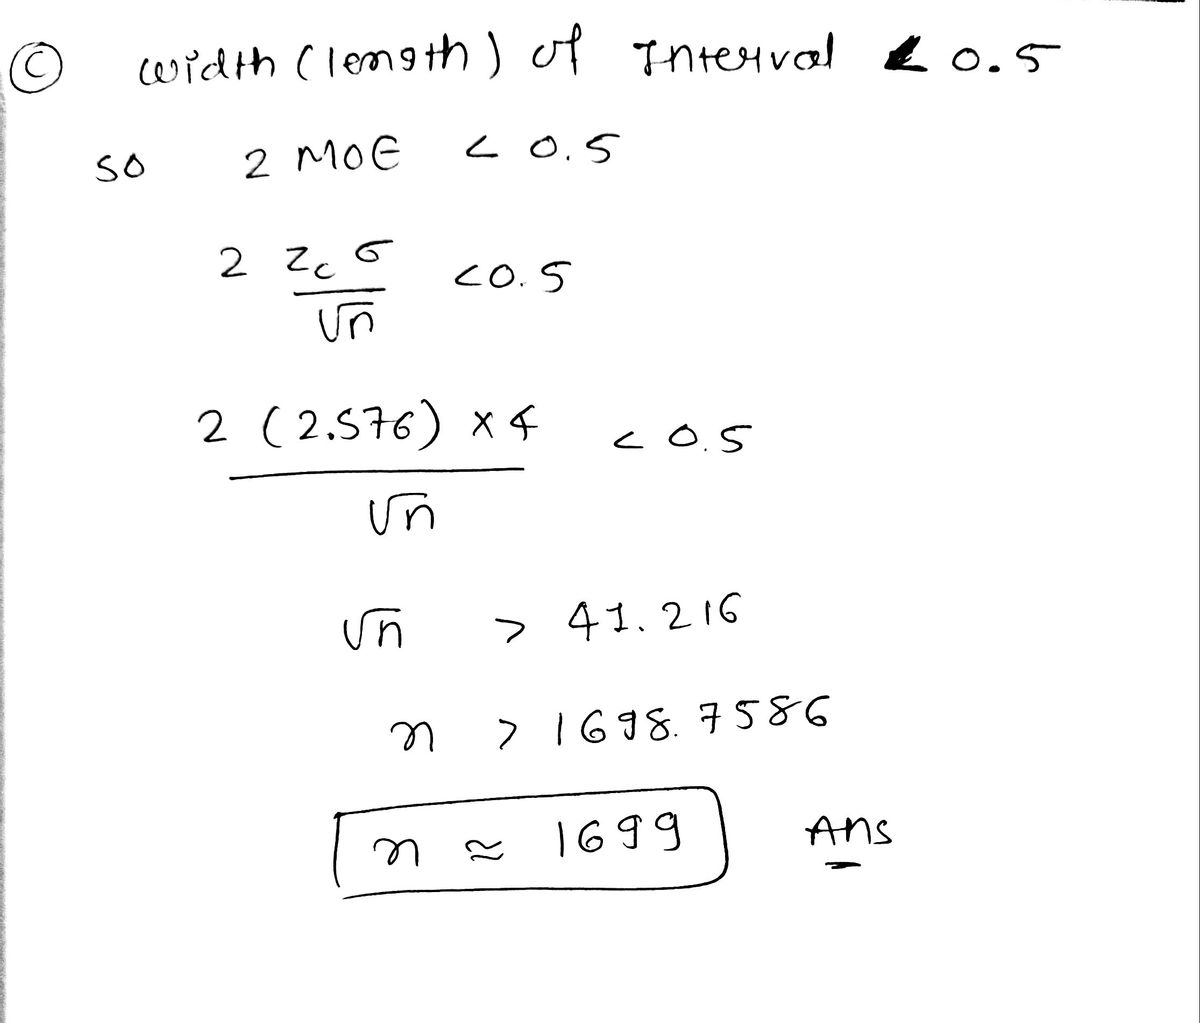 Ⓒ width (length) of Interval < 0.5
so 2 MOE < 0.5
2 Zc σ / √n < 0.5
2 (2.576) × 4 / √n < 0.5
√n > 41.216
n > 1698.7586
n ≈ 1699 Ans